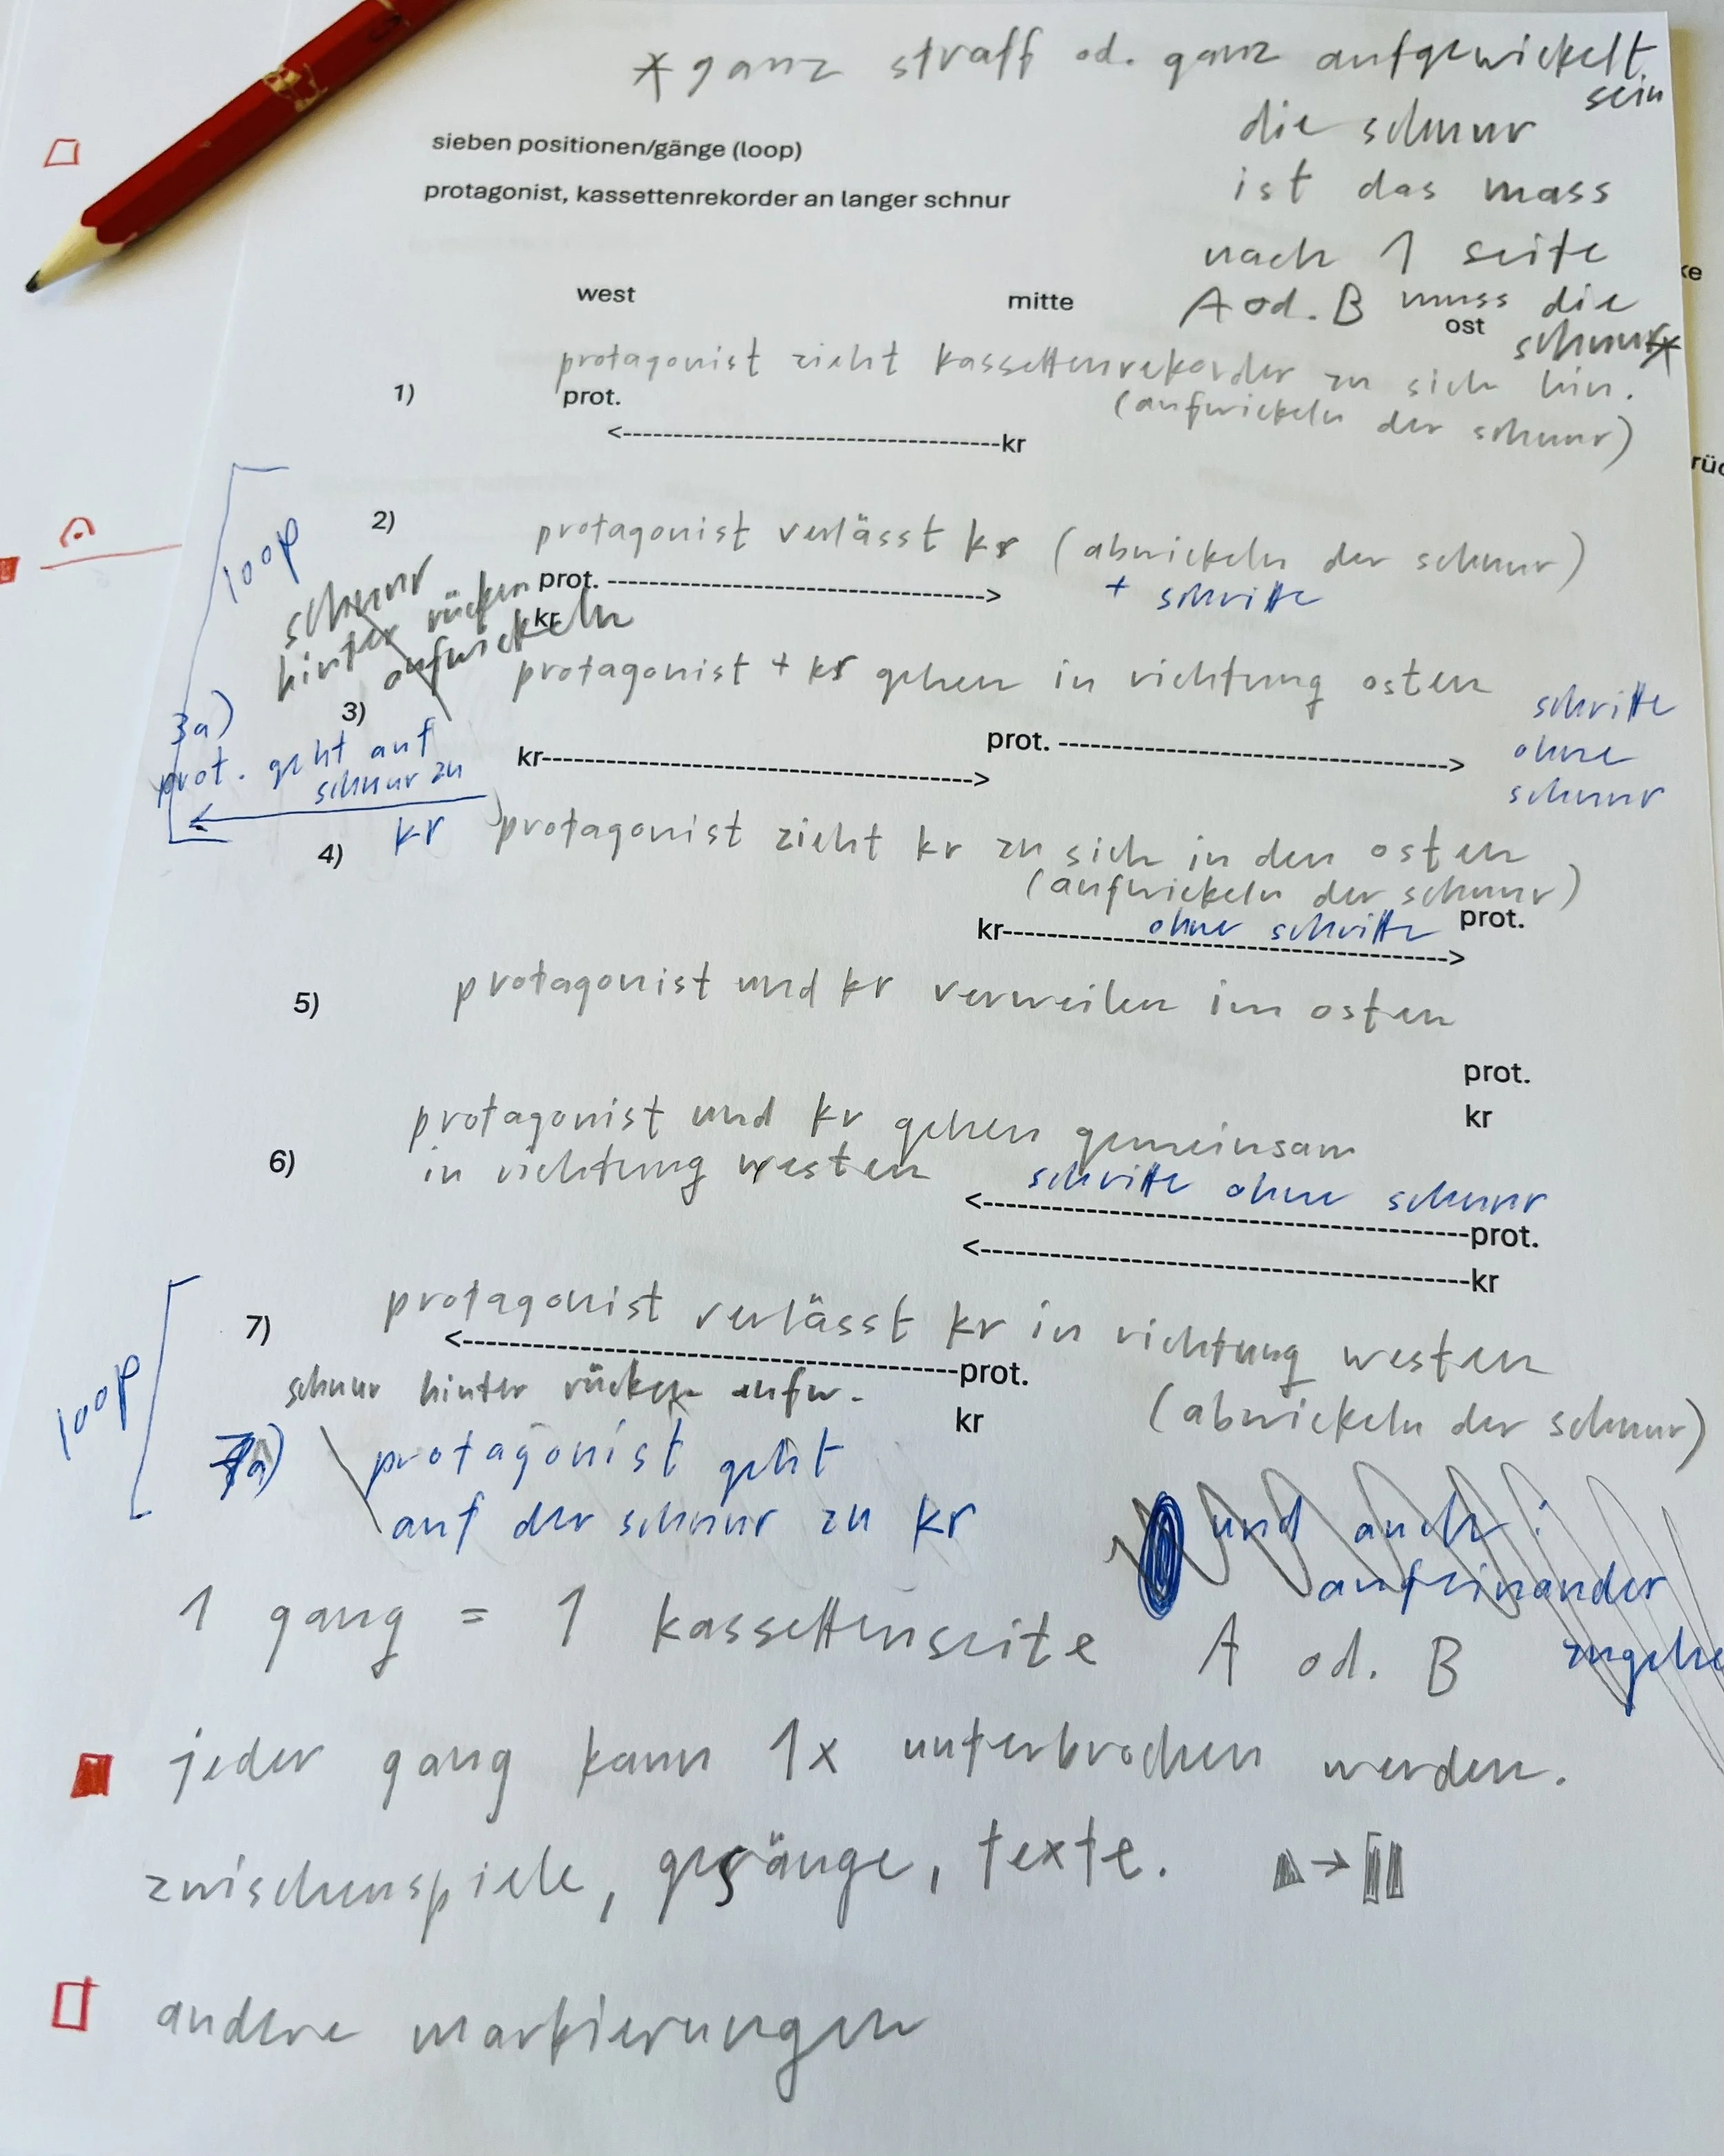 * ganz straff od. ganz aufgewickelt
sein
die schnur
ist das mass
nach 1 seite
A od. B muss die
schnur *
sieben positionen/gänge (loop)
protagonist, kassettenrekorder an langer schnur
west mitte ost
protagonist zieht kassettenrekorder zu sich hin.
(aufwickeln der schnur)
1) prot.
<-----------------------------kr
loop
2) protagonist verlässt kr (abwickeln der schnur)
+ schritte
prot. ----------------------------->
kr
schnur
hinter rücken
aufwickeln
protagonist + kr gehen in richtung osten
3) prot. ----------------------------->
kr----------------------------->
schritte
ohne
schnur
3a)
prot. geht auf
schnur zu
kr
4) protagonist zieht kr zu sich in den osten
(aufwickeln der schnur)
ohne schritte prot.
kr----------------------------->
5) protagonist und kr verweilen im osten
prot.
kr
protagonist und kr gehen gemeinsam
6) in richtung westen
schritte ohne schnur
<-----------------------------prot.
<-----------------------------kr
loop
7) protagonist verlässt kr in richtung westen
<-----------------------------prot.
schnur hinter rücken aufw.
kr (abwickeln der schnur)
7a) protagonist geht
auf der schnur zu kr
und auch:
aufeinander
1 gang = 1 kassettenseite A od. B
jeder gang kann 1x unterbrochen werden.
zwischenspiele, gesänge, texte. →
andere markierungen